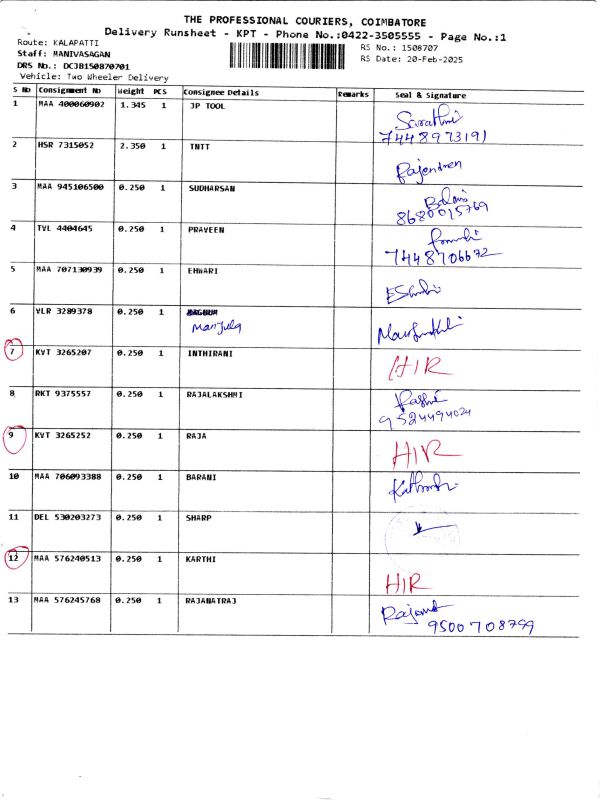 THE PROFESSIONAL COURIERS, COIMBATORE
Delivery Runsheet - KPT - Phone No.:0422-3505555 - Page No.:1
Route: KALAPATTI
RS No.: 1508707
Staff: MANIVASAGAN
RS Date: 20-Feb-2025
DRS No.: DCJB150870701
Vehicle: Two Wheeler Delivery
S No Consignment No Weight PCS Consignee Details Remarks Seal & Signature
1 MAA 400060902 1.345 1 JP TOOL
7448973191
2 HSR 7315052 2.350 1 TNTT Rajendren
3 MAA 945106500 0.250 1 SUDHARSAN
8680015769
4 TVL 4404645 0.250 1 PRAVEEN
7448706672
5 MAA 707130939 0.250 1 EHWARI
6 VLR 3289378 0.250 1
Manjula
7 KVT 3265207 0.250 1 INTHIRANI HIR
8 RKT 9375557 0.250 1 RAJALAKSHMI
9524494024
9 KVT 3265252 0.250 1 RAJA HIR
10 MAA 706093388 0.250 1 BARANI
11 DEL 530203273 0.250 1 SHARP
12 MAA 576240513 0.250 1 KARTHI HIR
13 MAA 576245768 0.250 1 RAJANATRAJ
9500708799